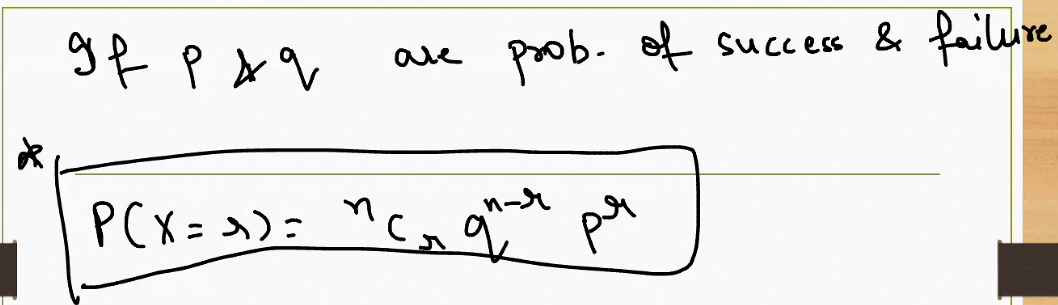 If p & q are prob. of success & failure
* P(X=r) = ⁿCᵣ qⁿ⁻ʳ pʳ